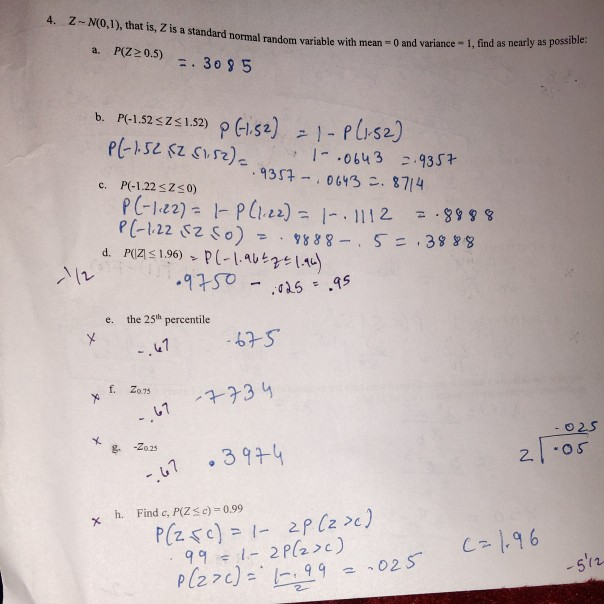 4. Z~ N(0,1), that is, Z is a standard normal random variable with mean = 0 and variance = 1, find as nearly as possible:
a. P(Z ≥ 0.5) = .3085
b. P(-1.52 ≤ Z ≤ 1.52) P(-1.52) = 1 - P(1.52)
P(-1.52 ≤ Z ≤ 1.52) = 1 - .0643 = .9357
.9357 - .0643 = .8714
c. P(-1.22 ≤ Z ≤ 0)
P(-1.22) = 1- P(1.22) = 1-.1112 = .8888
P(-1.22 ≤ Z ≤ 0) = .8888 - .5 = .3888
d. P(|Z| ≤ 1.96) = P(-1.96 ≤ z ≤ 1.96)
-1/2 .9750 - .025 = .95
e. the 25th percentile
x -.67 .675
x f. Z0.75 -.67 .7734
x g. -Z0.25 -.67 .3974
.025
2 .05
x h. Find c, P(Z ≤ c) = 0.99
P(Z ≤ c) = 1- 2P(Z >c)
.99 = 1- 2P(Z>c)
P(Z>c) = 1-.99 / 2 = .025 C = 1.96
-5 1/2